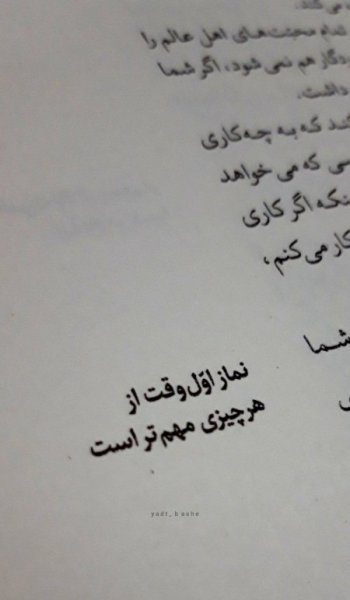 می‌کند.
تمام محبّت‌های اهل عالم را
دگار هم نمی شود، اگر شما
داشت.
کند که به چه کاری
سی که می خواهد
نکه اگر کاری
کار می کنم،
شما
نماز اوّل وقت از
هر چیزی مهم تر است
ی
yadt_bashe